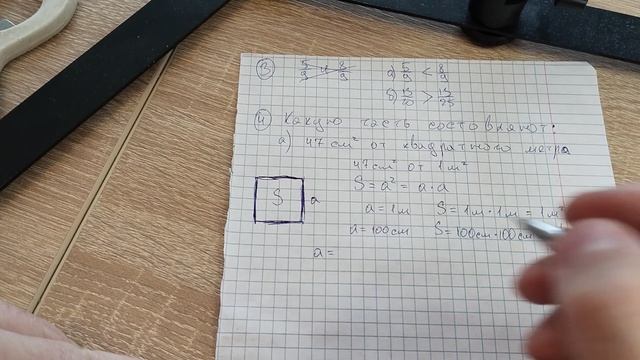 ③ 5/9 и 8/9 а) 5/9 < 8/9
б) 13/20 > 13/25
④ Какую часть составляют:
а) 47 см² от квадратного метра
47 см² от 1 м²
S = a² = a · a
S a
a = 1м S = 1м · 1м = 1м²
a = 100см S = 100см · 100см
a =